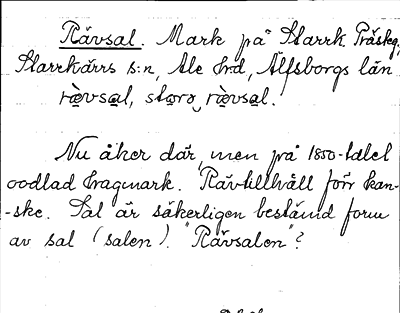 Rävsal. Mark på Starrk. Prästeg,
Starrkärrs s:n, Ale hrd, Älfsborgs län
rævsal, stora rævsal.
Nu åker där, men på 1850-talet
oodlad hagmark. Rävtillhåll förr kan-
-ske. Sal är säkerligen bestämd form
av sal (salen). "Rävsalen"?